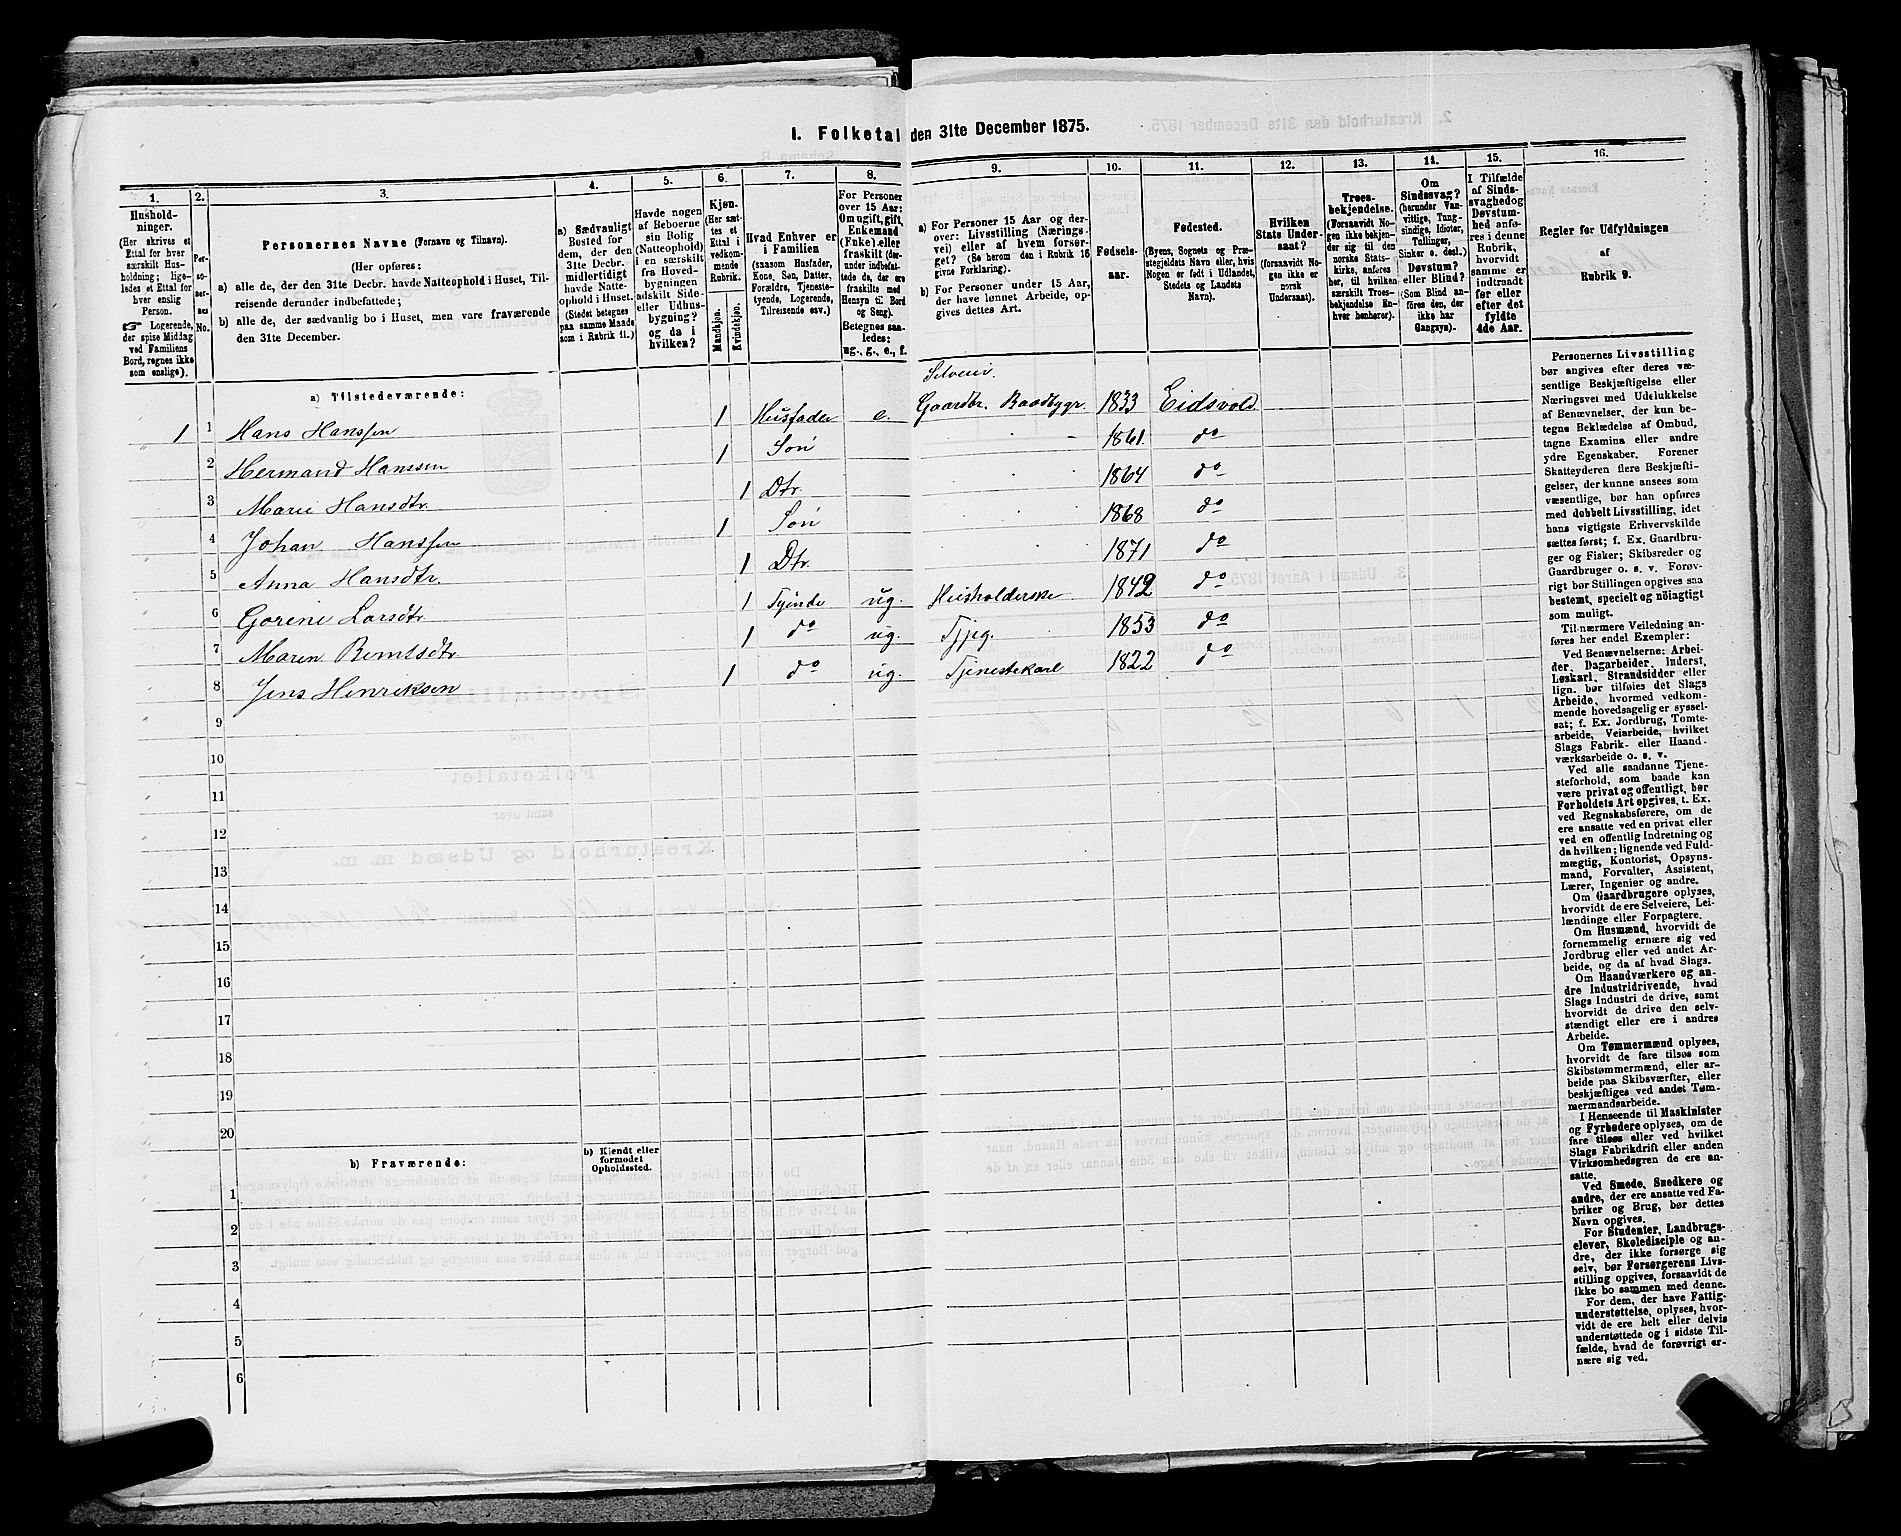 1. Folketal den 31te December 1875.
1.
Hushold-
ninger.
(Her skrives et
Ettal for hver
særskilt Hus-
holdning; lige-
ledes et Ettal for
hver enslig
Person.
☞ Logerende,
der spise Middag
ved Familiens
Bord, regnes ikke
som enslige).
2.
Per-
so-
ner-
nes
No.
3.
Personernes Navne (Fornavn og Tilnavn).
(Her opføres:
a) alle de, der den 31te Decbr. havde Natteophold i Huset, Til-
reisende derunder indbefattede;
b) alle de, der sædvanlig bo i Huset, men vare fraværende
den 31te December.
4.
a) Sædvanligt
Bosted for
dem, der den
31te Decbr.
midlertidigt
havde Natte-
ophold i Huset.
(Stedet betegnes
paa samme Maade
som i Rubrik 11.)
5.
Havde nogen
af Beboerne
sin Bolig
(Natteophold)
i en særskilt
fra Hoved-
bygningen
adskilt Side-
eller Udhus-
bygning?
og da i
hvilken?
6.
Kjøn.
(Her sæt-
tes et
Ettal i
vedkom-
mende
Rubrik.)
Mandkjøn.
Kvindekjøn.
7.
Hvad Enhver er
i Familien
(saasom Husfader,
Kone, Søn, Datter,
Forældre, Tjeneste-
tyende, Logerende,
Tilreisende osv.)
8.
For Personer
over 15 Aar:
Om ugift, gift,
Enkemand
(Enke) eller
fraskilt (der-
under indbefat-
tede de, der ere
fraskilte med
Hensyn til Bord
og Seng).
Betegnes saa-
ledes:
ug., g., e., f.
9.
a) For Personer 15 Aar og der-
over: Livsstilling (Nærings-
vei) eller af hvem forsør-
get? (Se herom den i Rubrik 16
givne Forklaring).
b) For Personer under 15 Aar,
der have lønnet Arbeide, op-
gives dettes Art.
10.
Fødsels-
aar.
11.
Fødested.
(Byens, Sognets og Præ-
stegjeldets Navn eller, hvis
Nogen er født i Udlandet,
Stedets og Landets
Navn).
12.
Hvilken
Stats Under-
saat?
(forsaavidt No-
gen ikke er
norsk
Undersaat).
13.
Troes-
bekjendelse.
(Forsaavidt No-
gen ikke bekjen-
der sig til den
norske Stats-
kirke, anføres
her, til hvilken
særskilt Troes-
bekjendelse En-
hver henhører).
14.
Om
Sindssvag?
(herunder Van-
vittige, Tung-
sindige, Idioter,
Tullinger,
Sinker o. desl.)
Døvstum?
eller Blind?
(Som Blind an-
føres den, der
ikke har
Gangsyn).
15.
I Tilfælde
af Sinds-
svaghed og
Døvstum-
hed anfø-
res i denne
Rubrik,
hvorvidt
samme er
indtraadt
før eller
efter det
fyldte
4de Aar.
16.
Regler for Udfyldningen
af
Rubrik 9.
a) Tilstedeværende:
Selveier.
1 1 Hans Hanssen 1 Husfader e. Gaardbr. Baadbygr. 1833 Eidsvold
2 Hermand Hanssen 1 Søn 1861 do
3 Marie Hansdtr. 1 Dtr. 1864 do
4 Johan Hanssen 1 Søn 1868 do
5 Anna Hansdtr. 1 Dtr. 1871 do
6 Gorine Larsdtr. 1 Tyende ug. Husholderske 1842 do
7 Maren Berntsdtr. 1 do ug. Tjpg. 1853 do
8 Jens Henriksen 1 do ug. Tjenestekarl 1822 do
9
10
11
12
13
14
15
16
17
18
19
20
b) Fraværende:
b) Kjendt eller
formodet
Opholdssted.
1
2
3
4
5
6
Personernes Livsstilling
bør angives efter deres væ-
sentlige Beskjæftigelse eller
Næringsvei med Udelukkelse
af Benævnelser, der kun be-
tegne Beklædelse af Ombud,
tagne Examina eller andre
ydre Egenskaber. Forener
Skatteyderen flere Beskjæfti-
gelser, der kunne ansees som
væsentlige, bør han opføres
med dobbelt Livsstilling, idet
hans vigtigste Erhvervskilde
sættes først; f. Ex. Gaardbru-
ger og Fisker; Skibsreder og
Gaardbruger o. s. v. Forøv-
rigt bør Stillingen opgives saa
bestemt, specielt og nöiagtigt
som muligt.
Til nærmere Veiledning an-
føres her endel Exempler:
Ved Benævnelserne: Arbei-
der, Dagarbeider, Inderst,
Løskarl, Strandsidder eller
lign. bør tilføies det Slags
Arbeide, hvormed vedkom-
mende hovedsagelig er syssel-
sat; f. Ex. Jordbrug, Tomte-
arbeide, Veiarbeide, hvilket
Slags Fabrik- eller Haand-
værksarbeide o. s. v.
Ved alle saadanne Tjene-
steforhold, som baade kan
være privat og offentligt, bør
Forholdets Art opgives, t. Ex.
ved Regnskabsførere, om de
ere ansatte ved en privat eller
ved en offentlig Indretning og
da hvilken; lignende ved Fuld-
mægtig, Kontorist, Opsyns-
mand, Forvalter, Assistent,
Lærer, Ingeniør og andre.
Om Gaardbrugere oplyses,
hvorvidt de ere Selveiere, Lei-
lændinge eller Forpagtere.
Om Husmænd, hvorvidt de
fornemmelig ernære sig ved
Jordbrug eller ved andet Ar-
beide, og da af hvad Slags.
Om Haandværkere og an-
dre Industridrivende, hvad
Slags Industri de drive, samt
hvorvidt de drive den selv-
stændigt eller ere i andres
Arbeide.
Om Tømmermænd oplyses,
hvorvidt de fare tilsøs som
Skibstømmermænd, eller ar-
beide paa Skibsværfter, eller
beskjæftiges ved andet Tøm-
mermandsarbeide.
I Henseende til Maskinister
og Fyrbødere oplyses, om de
fare tilsøs eller ved hvilket
Slags Fabrikdrift eller anden
Virksomhedsgren de ere an-
satte.
Ved Smede, Snedkere og
andre, der ere ansatte ved Fa-
briker og Brug, bør dettes
Navn opgives.
For Studenter, Landbrugs-
elever, Skoledisciple og an-
dre, der ikke forsørge sig
selv, bør Forsørgerens Livs-
stilling opgives, forsaavidt de
ikke bo sammen med denne.
For dem, der have Fattig-
understøttelse, oplyses, hvor-
vidt de ere helt eller delvis
understøttede og i sidste Til-
fælde, hvad de forøvrigt er-
nære sig ved.